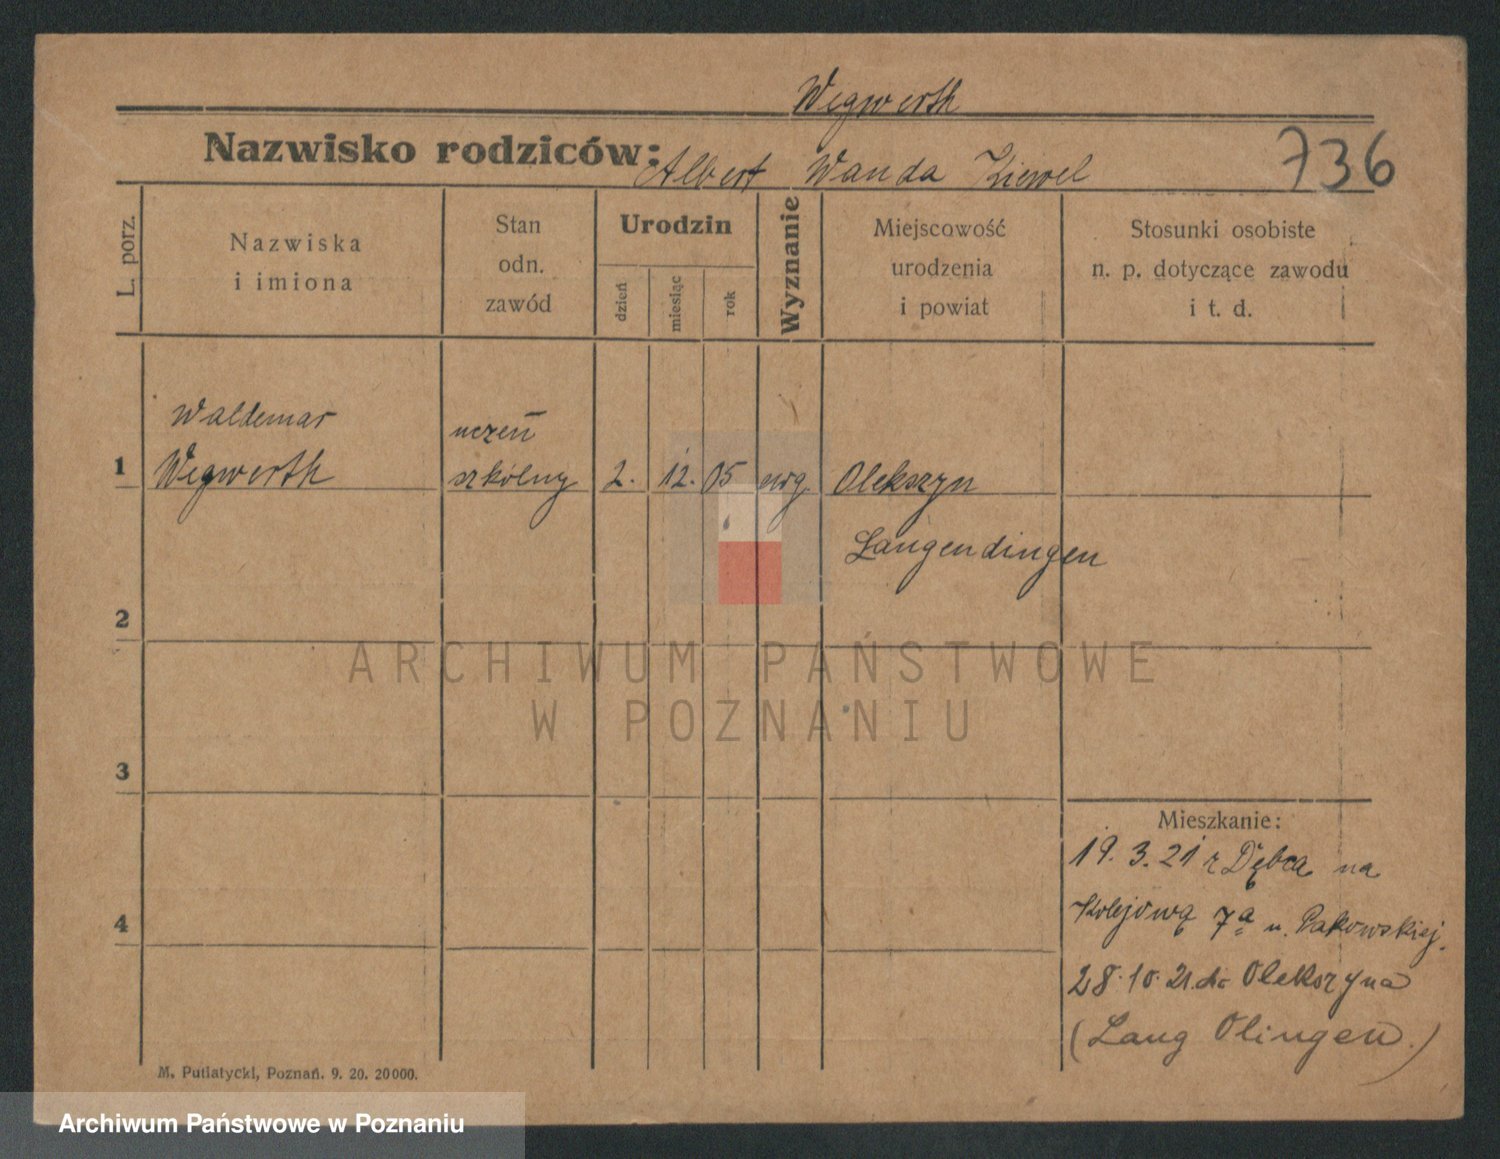 Wegwerth
Nazwisko rodziców: Albert Wanda Kiewel 736
L. porz.
Nazwiska
i imiona
Stan
odn.
zawód
Urodzin
dzień
miesiąc
rok
Wyznanie
Miejscowość
urodzenia
i powiat
Stosunki osobiste
n. p. dotyczące zawodu
i t. d.
Waldemar uczeń
1 Wegwerth szkólny 2. 12. 05 ewg. Olekszyn
Langendingen
2
ARCHIWUM PAŃSTWOWE
W POZNANIU
3
Mieszkanie:
19. 3. 21 z Dębca na
Kolejową 7a u. Pakowskiej.
4
28. 10. 21. do Olekszyna
(Lang Olingen.)
M. Putiatycki, Poznań. 9. 20. 20000.
Archiwum Państwowe w Poznaniu